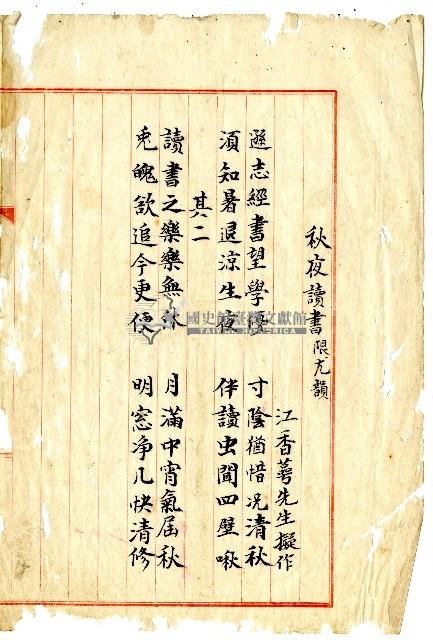 秋夜讀書 限尤韻
江香蕚先生擬作
遜志經書望學優 寸陰猶惜况清秋
須知暑退涼生夜 伴讀虫聞四壁啾
其二
讀書之樂樂無 月滿中宵氣屆秋
兎魄欲追今更便 明窓净几快清修
國史館臺灣文獻館
TAIWAN HISTORICA